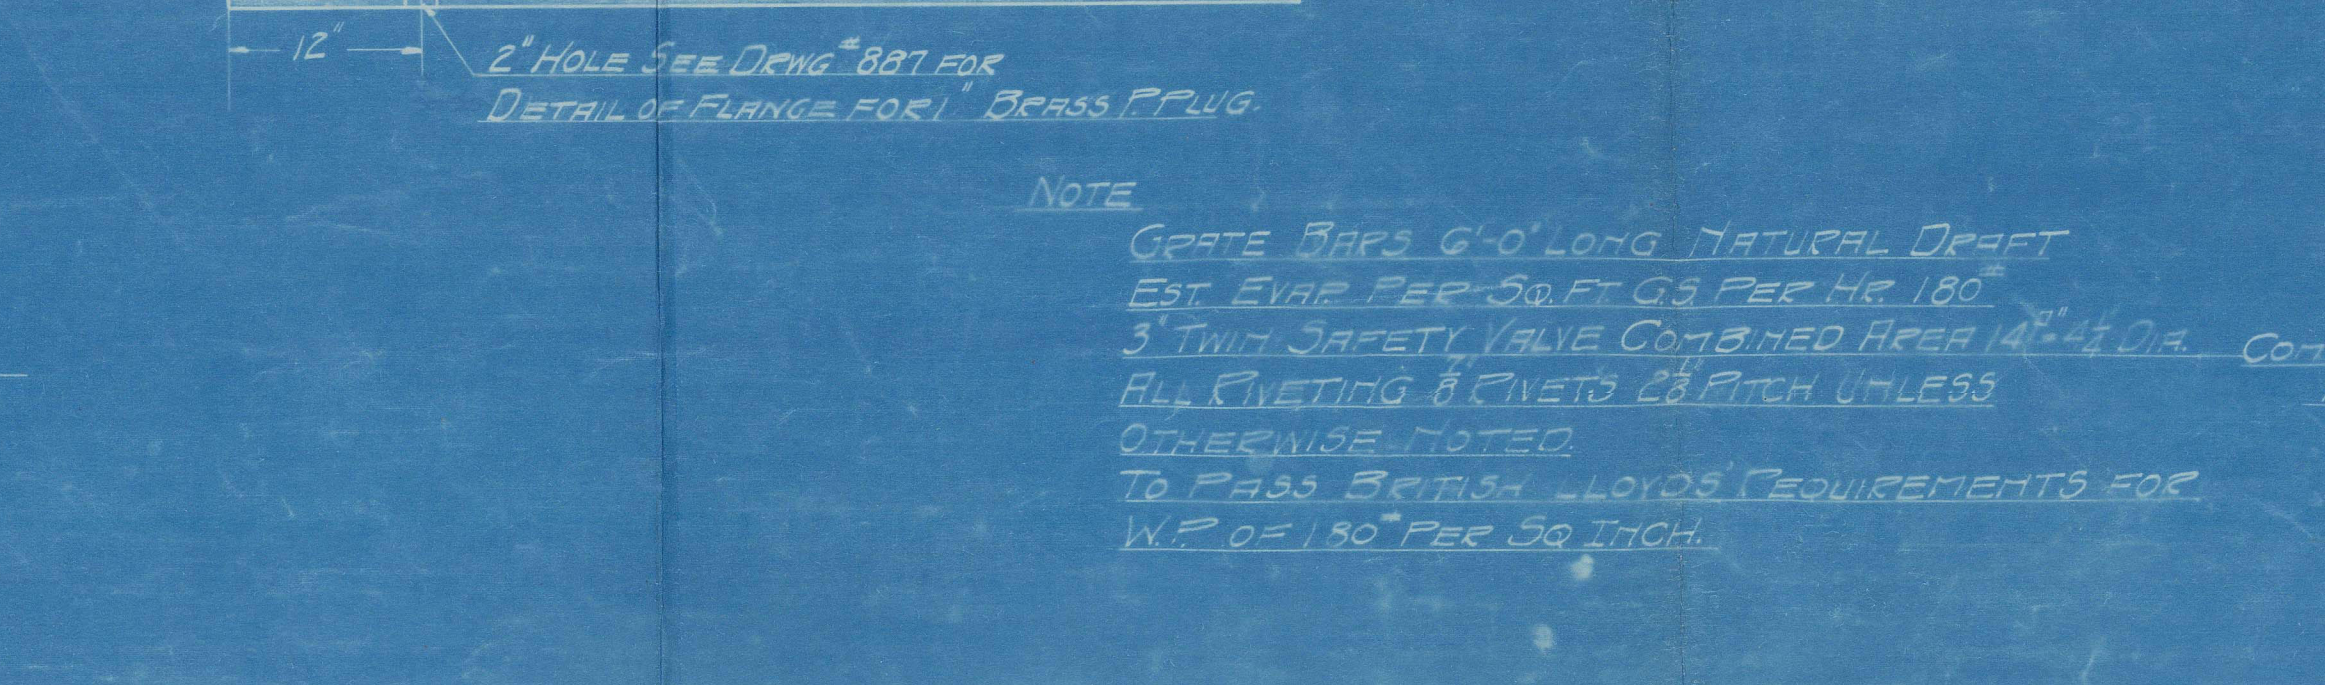 12"
2" HOLE SEE DRWG # 887 FOR
DETAIL OF FLANGE FOR 1" BRASS P. PLUG.
NOTE
GRATE BARS 6'-0" LONG NATURAL DRAFT
EST. EVAP. PER SQ. FT. G.S. PER HR. 180#
3" TWIN SAFETY VALVE COMBINED AREA 14 4 1/4" DIA.
COM
ALL RIVETING 7/8" RIVETS 2 1/8" PITCH UNLESS
OTHERWISE NOTED.
TO PASS BRITISH LLOYDS' REQUIREMENTS FOR
W.P. OF 180# PER SQ INCH.